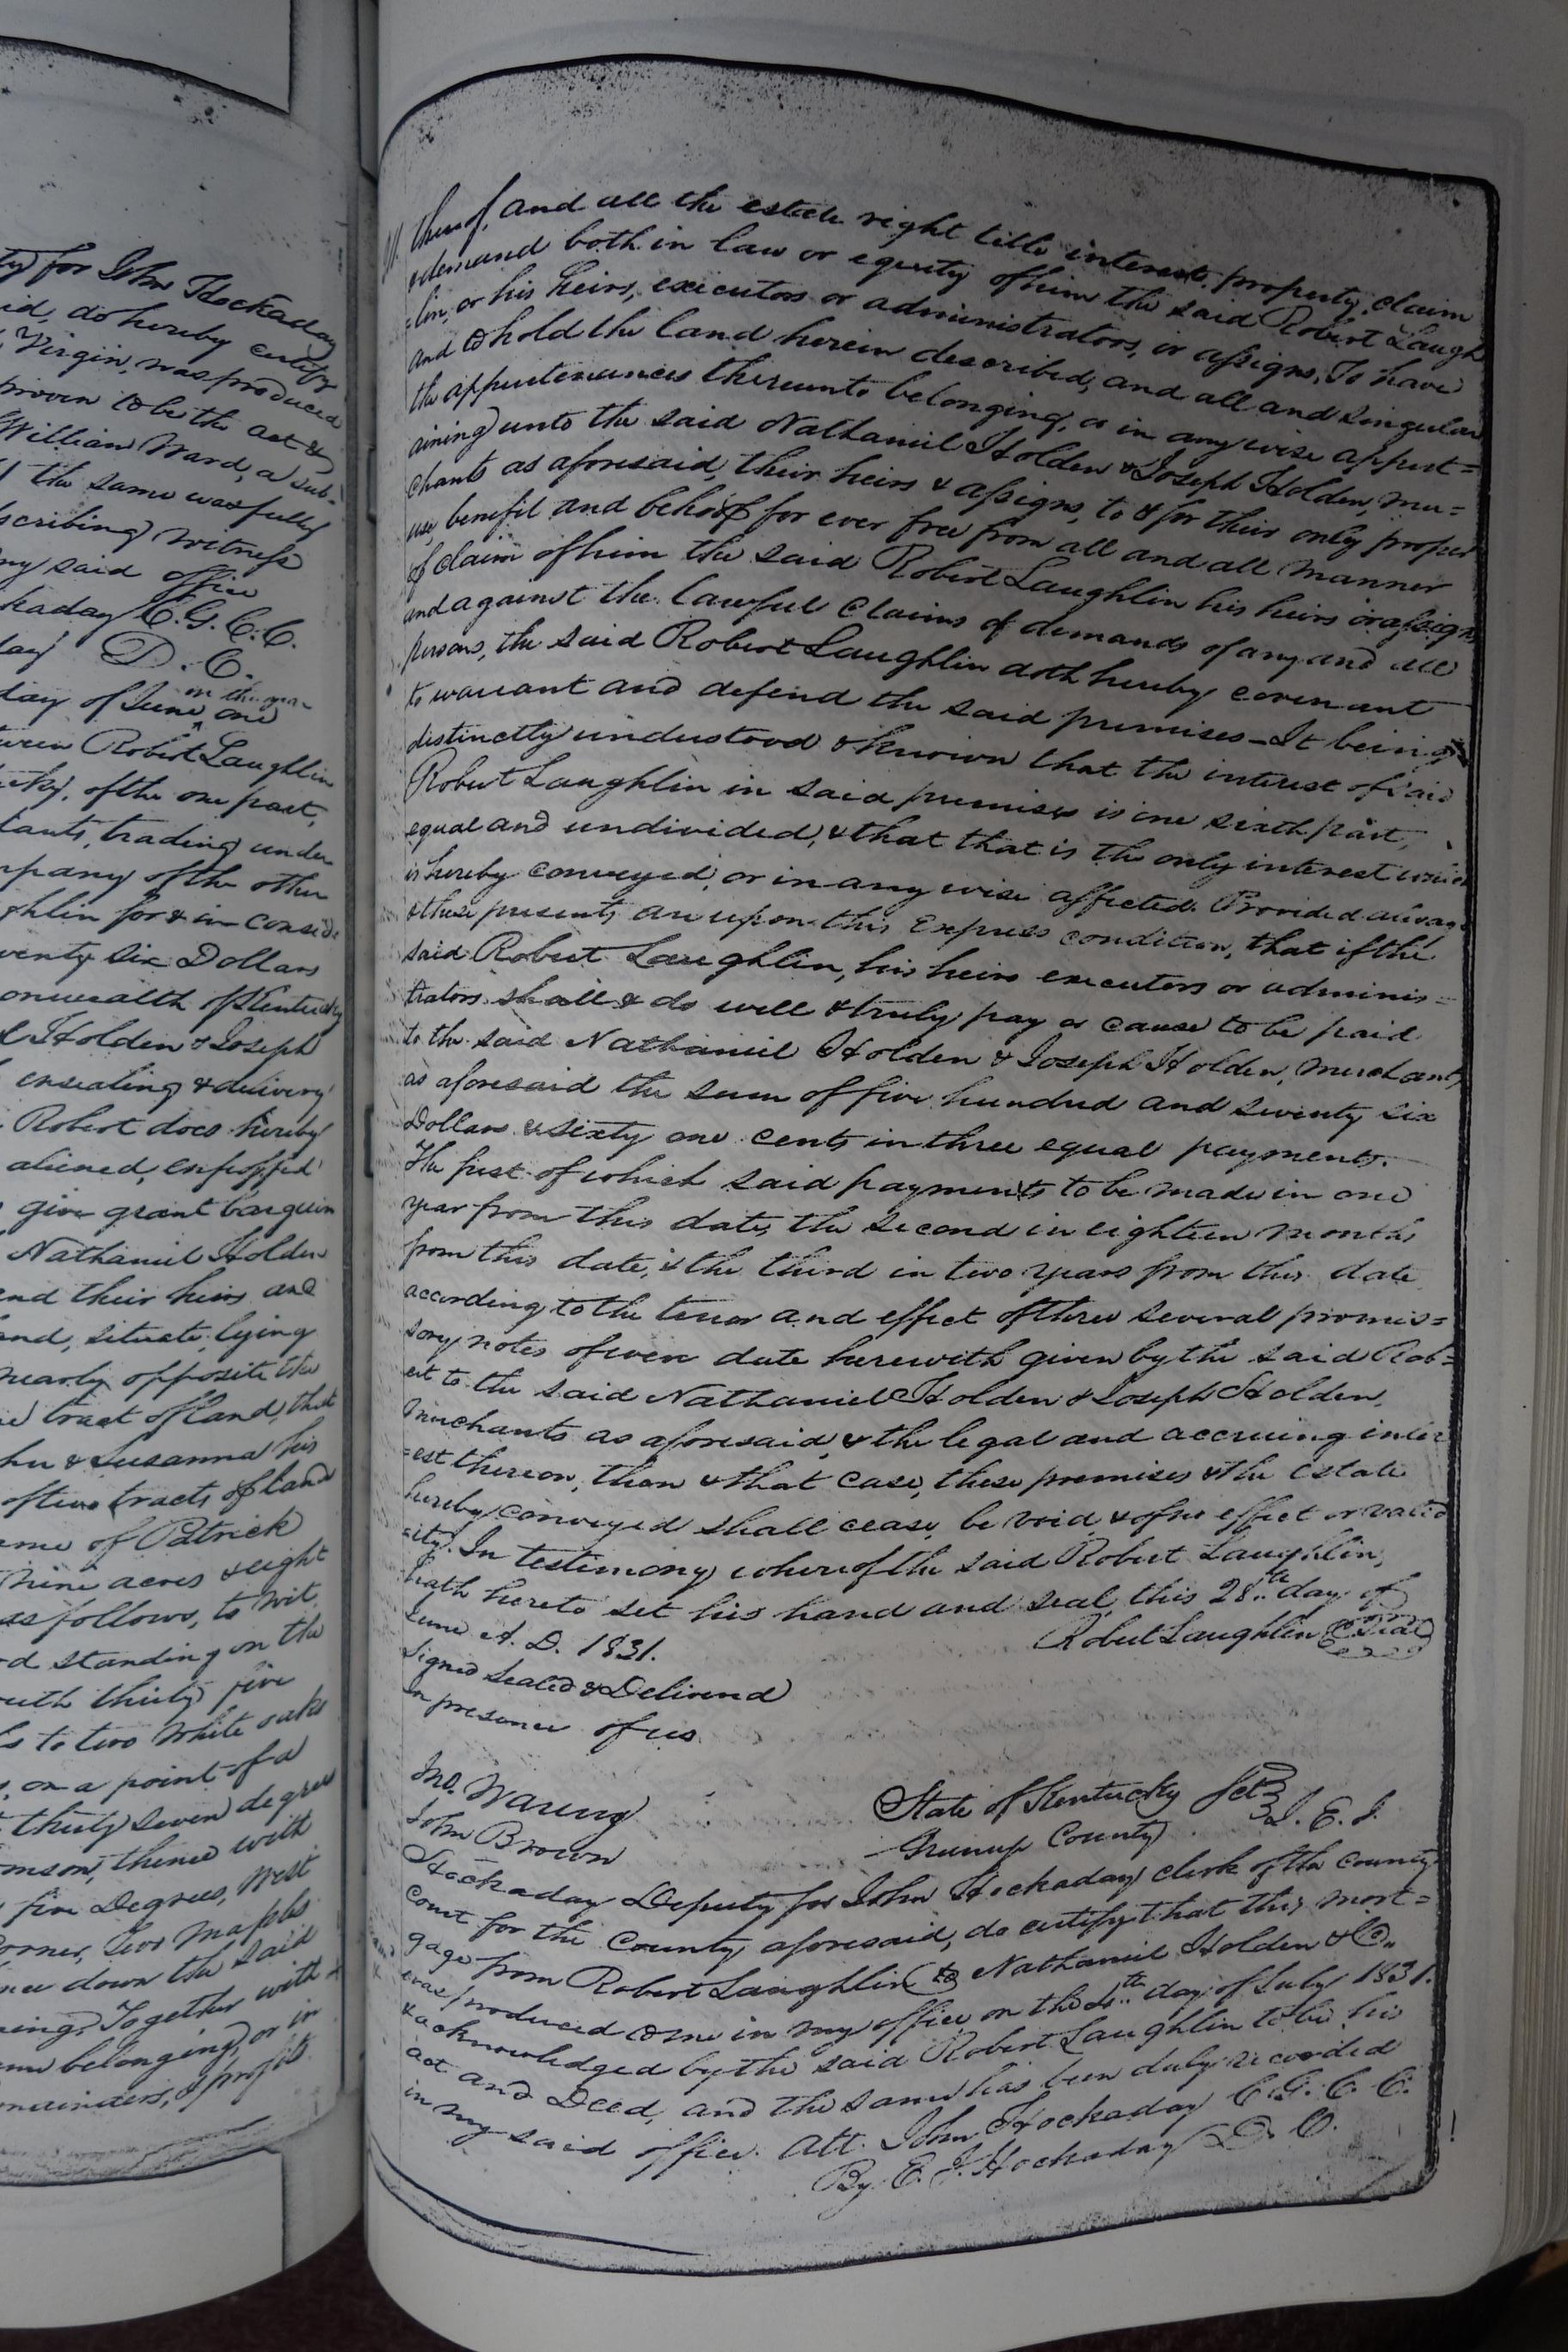 ty for John Hockaday
id, do hereby certify
Virgin, was produced
proven to be the act &
William Ward, a sub-
the same was fully
scribing witness
my said office
kaday C.G.C.C.
day D.C.
day of June in the year one
tween Robert Laughlin
cky, of the one part,
tants, trading under
mpany of the other
ghlin for & in consid
venty six Dollars
onwealth of Kentucky
l Holden & Joseph
ensealing & delivery
Robert does hereby
aliened, enfeoffed
give grant bargain
Nathaniel Holden
and their heirs and
and, situate, lying
nearly opposite the
tract of land, that
hn & Susanna his
of two tracts of land
ame of Patrick
nine acres & eight
as follows, to wit.
d standing on the
outh thirty five
s to two white oaks
on a point of a
thirty seven degrees
mson, thence with
five Degrees, West
corner, two maples
nce down the said
ning. Together with
ame belonging, or in
mainders, & profits
thereof, and all the estate right title interest, property, claim
& demand both in law or equity of him the said Robert Laugh
=lin, or his heirs, executors or administrators, or assigns, To have
and to hold the land herein described, and all and singular
the appurtenances thereunto belonging, or in any wise appert=
aining unto the said Nathaniel Holden & Joseph Holden, mer=
chants as aforesaid, their heirs & assigns, to & for their only proper
use, benefit and behoof for ever free from all and all manner
of claim of him the said Robert Laughlin his heirs or assigns
and against the lawful claims of demands of any and all
persons, the said Robert Laughlin doth hereby covenant
to warrant and defend the said premises – It being
distinctly understood & known that the interest of said
Robert Laughlin in said premises is one sixth part,
equal and undivided, & that that is the only interest which
is hereby conveyed, or in any wise affected. Provided always
& these presents are upon this Express condition, that if the
said Robert Laughlin, his heirs executors or adminis=
trators shall & do well & truly pay or cause to be paid
to the said Nathaniel Holden & Joseph Holden, merchants
as aforesaid the sum of five hundred and seventy six
Dollars & sixty one cents in three equal payments.
The first of which said payments to be made in one
year from this date, the second in eighteen months
from this date, & the third in two years from this date
according to the tenor and effect of three several promis=
sory notes of even date herewith given by the said Rob=
ert to the said Nathaniel Holden & Joseph Holden,
merchants as aforesaid, & the legal and accruing inter
=est thereon, then & that case, these premises & the estate
hereby conveyed shall cease, be void & of no effect or valid
=ity. In testimony whereof the said Robert Laughlin,
hath hereto set his hand and seal, this 28th day of
June A. D. 1831.
Robert Laughlin Seal
Signed Sealed & Delivered
in presence of us
Jno. Waring
John Brown
State of Kentucky Sct
Greenup County
I. E. J.
Hockaday Deputy for John Hockaday clerk of the county
court for the County aforesaid, do certify that this mort=
gage from Robert Laughlin to Nathaniel Holden & Co.
was produced to me in my office on the 4th day of July 1831.
& acknowledged by the said Robert Laughlin to be his
act and Deed, and the same has been duly recorded
in my said office. Att. John Hockaday C.G.C.C.
By E. J. Hockaday D. C.